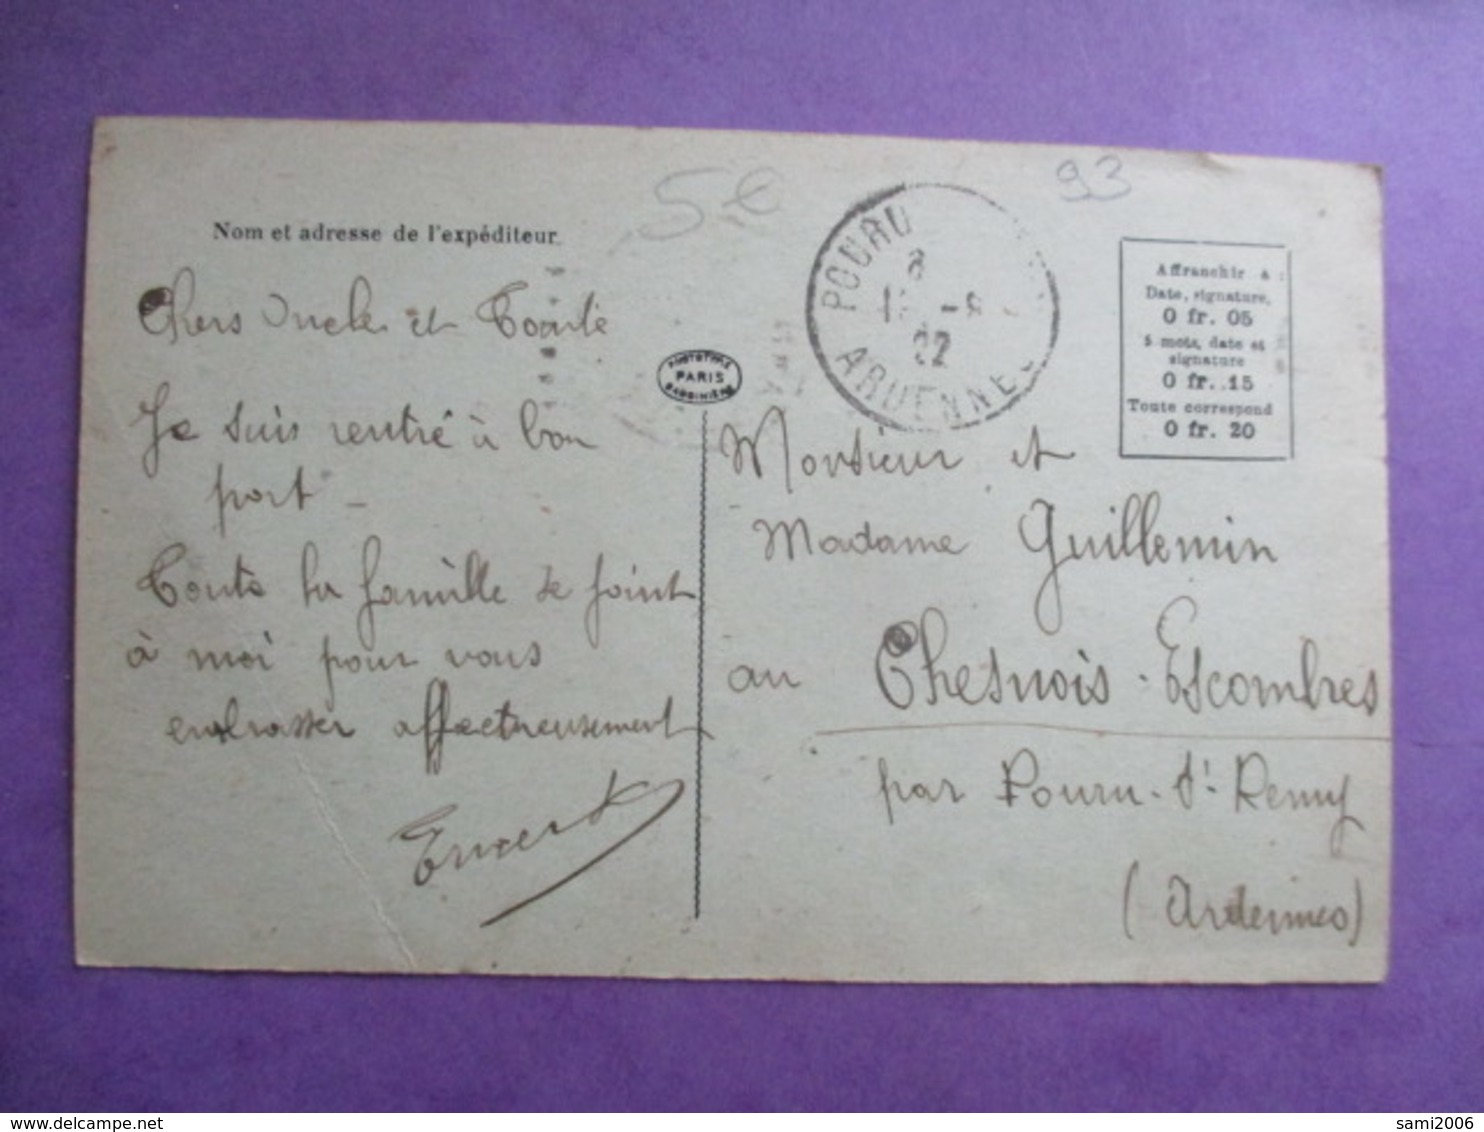 5 €
93
Nom et adresse de l'expéditeur
POURU
ARDENNES
22
Affranchir à :
Date, signature,
0 fr. 05
5 mots, date et
signature
0 fr. 15
Toute correspond
0 fr. 20
PHOTOTYPIE
PARIS
BAUDINIÈRE
Chers Oncle et Tante
Je suis rentré à bon
port -
Toute la famille se joint
à moi pour vous
embrasser affectueusement
Monsieur et
Madame Guillemin
au Chesnois - Escombres
par Pouru - St Remy
(Ardennes)
delcampe.net
sami2006